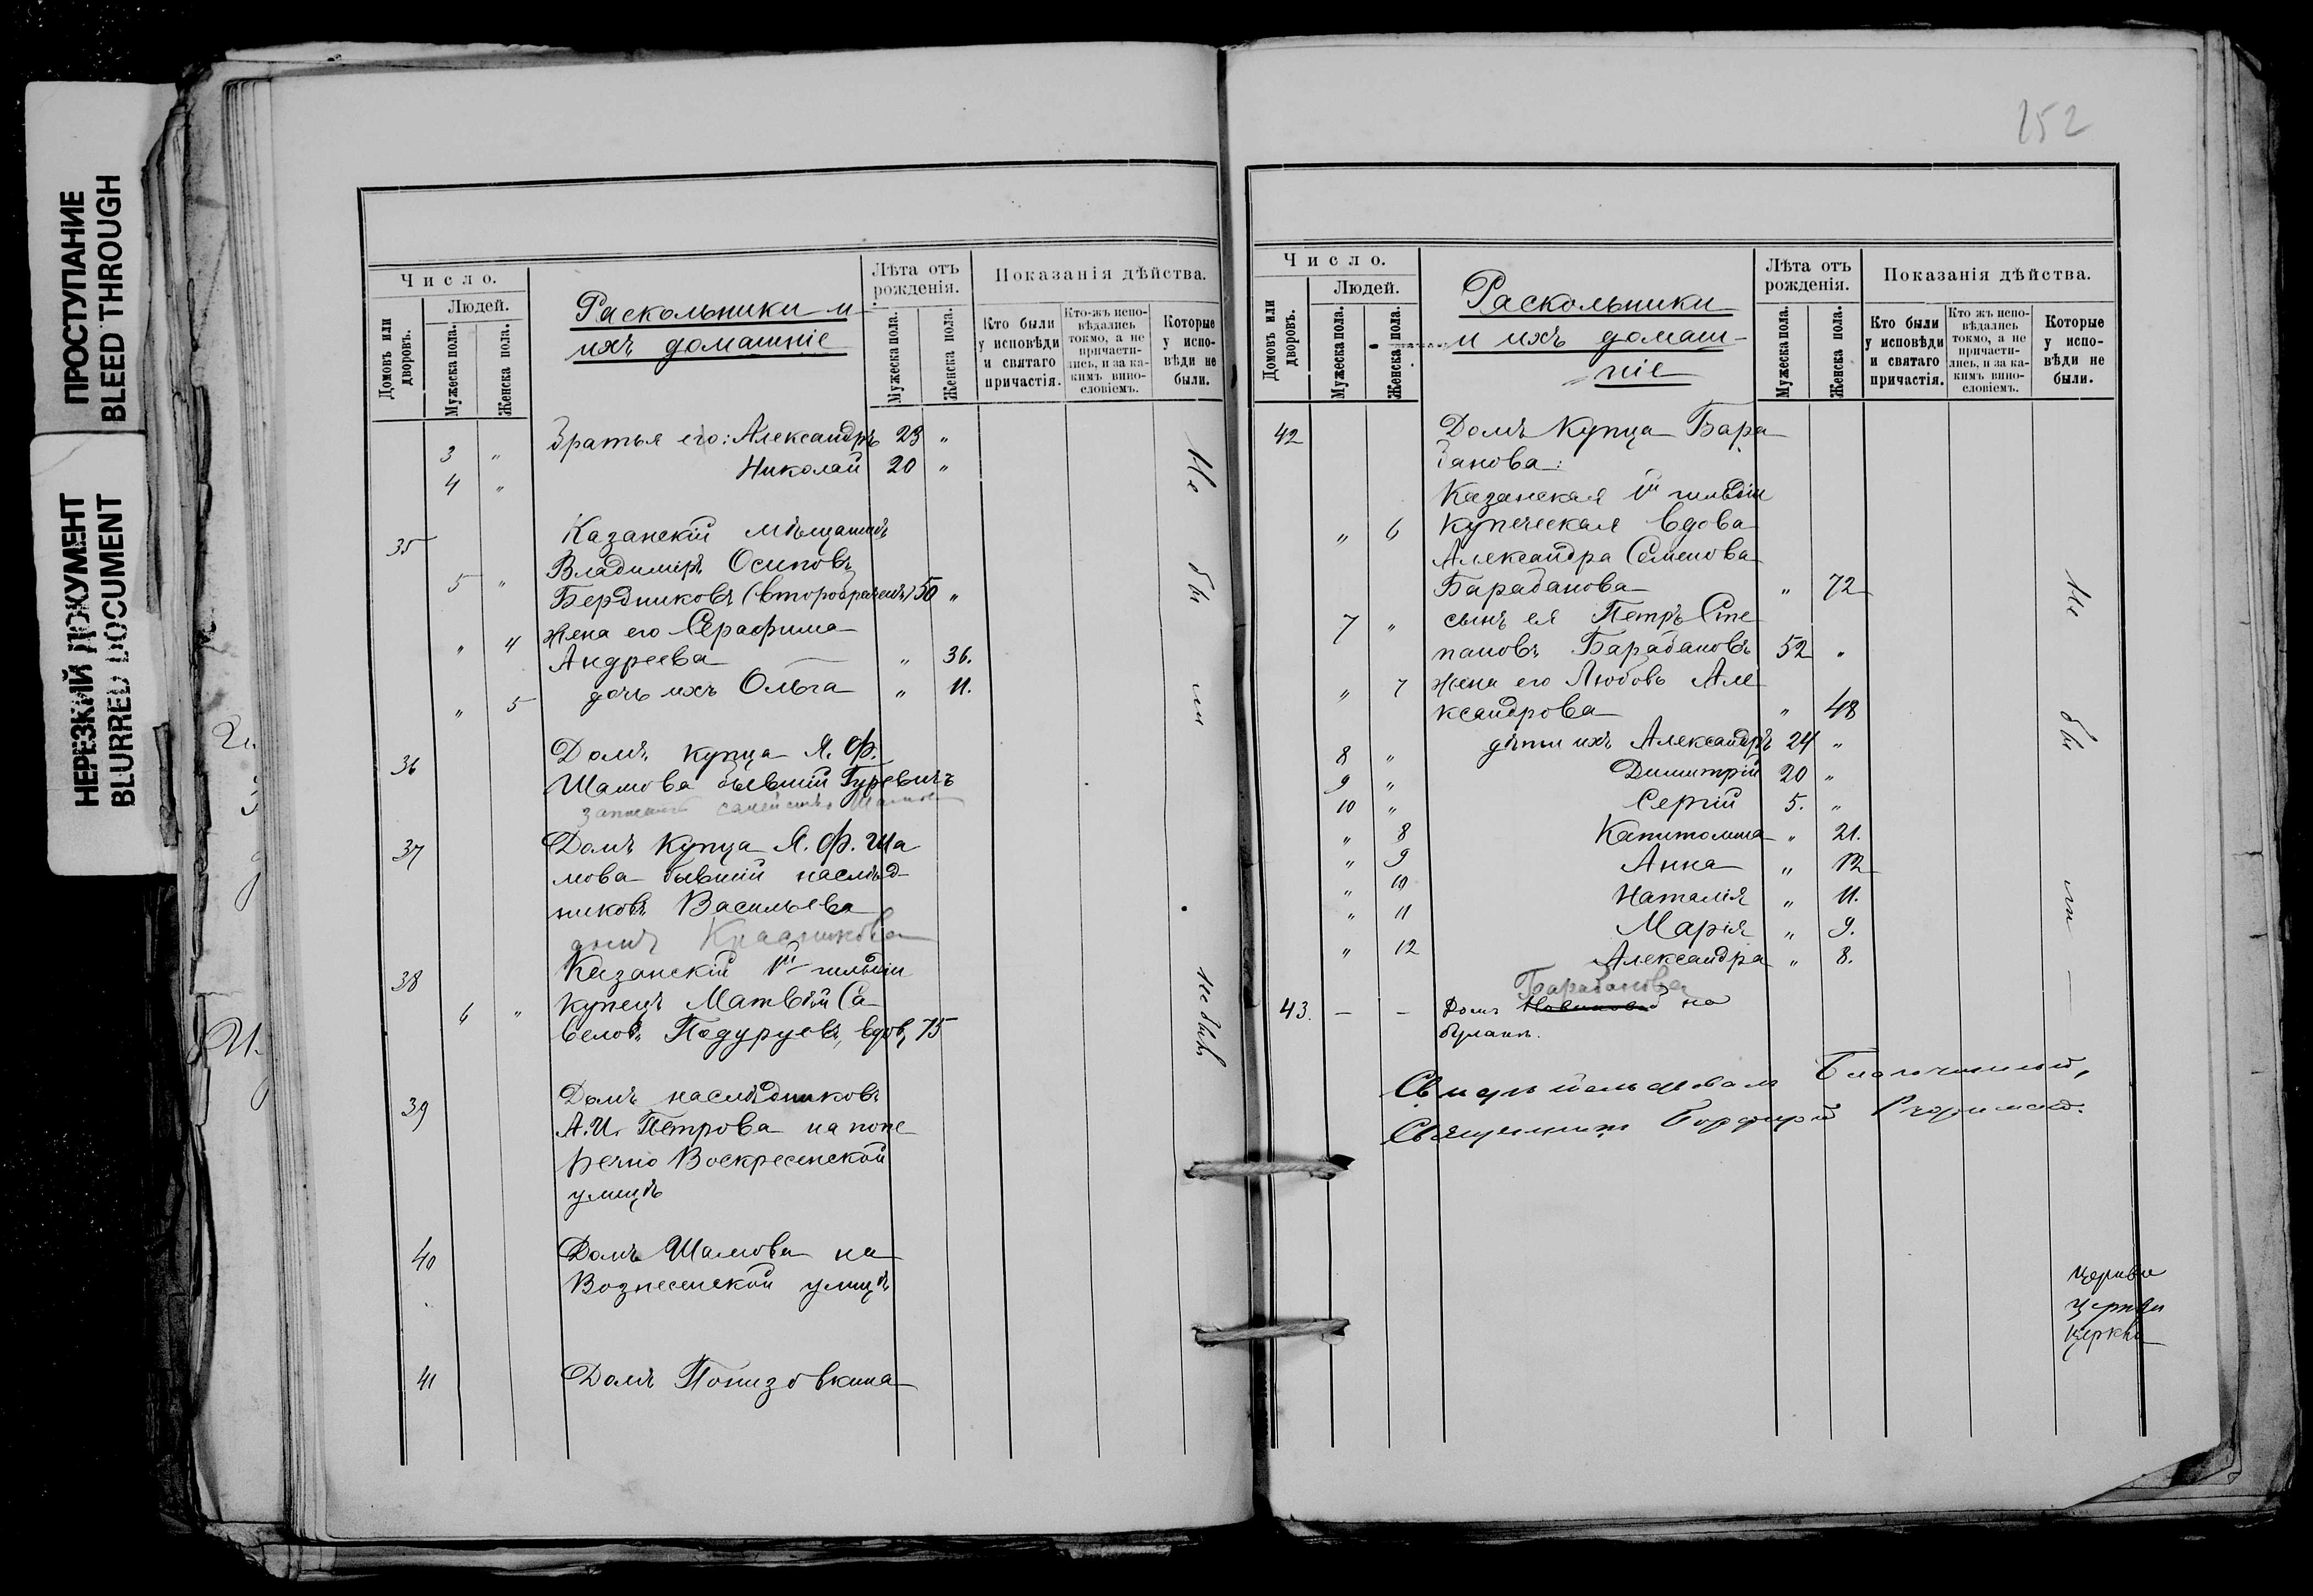 ПРОСТУПАНИЕ
BLEED THROUGH
НЕРЕЗКИЙ ДОКУМЕНТ
BLURRED DOCUMENT
Число.
Домовъ или дворовъ.
Людей.
Мужеска пола.
Женска пола.
Раскольники и
ихъ домашніе
Лѣта отъ рожденія.
Мужеска пола.
Женска пола.
Показанія дѣйства.
Кто были у исповѣди и святаго причастія.
Кто-жъ исповѣдались токмо, а не причастились, и за какимъ винословіемъ.
Которые у исповѣди не были.
3 " братья его: Александръ 23 "
4 " Николай 20 "
Не были
35 Казанскій мѣщанинъ
Владиміръ Осиповъ
5 " Бердниковъ (второбраченъ) 50 "
" 4 жена его Серафима
Андреева " 36.
" 5 дочь ихъ Ольга " 11.
36 Домъ купца Я. Ф.
Шамова бывшій Гуревичъ
37 Домъ купца Я. Ф. Ша
мова бывшій наслѣд
никовъ Васильева
38 Казанскій 1й гильдіи
6 " купецъ Матвѣй Са
велов. Подуруевъ, вдов, 75
не былъ
39 Домъ наслѣдниковъ
А. И. Петрова на попе
речно Воскресенской
улицѣ
40 Домъ Шамова на
Вознесенской улицѣ
41 Домъ Понизовкина
252
Число.
Домовъ или дворовъ.
Людей.
Мужеска пола.
Женска пола.
Раскольники
и ихъ домаш-
ніе
Лѣта отъ рожденія.
Мужеска пола.
Женска пола.
Показанія дѣйства.
Кто были у исповѣди и святаго причастія.
Кто жъ исповѣдались токмо, а не причастились, и за какимъ винословіемъ.
Которые у исповѣди не были.
42 Домъ купца Бара
банова:
Казанская 1й гильдіи
" 6 купеческая вдова
Александра Семенова
Барабанова " 72
7 " сынъ ея Петръ Сте
пановъ Барабановъ 52 "
" 7 жена его Любовь Але
ксандрова " 48
8 " дѣти ихъ Александръ 24 "
9 " Димитрій 20 "
10 " Сергій 5. "
" 8 Капитолина " 21.
" 9 Анна " 12
" 10 Наталія " 11.
" 11 Марія " 9.
" 12 Александра " 8.
Не были
Барабанова
43. – – Домъ на
булакѣ.
Свидѣтельствовалъ Благочинный,
Священникъ Порфирій
Церкви
Церкви
Церкви